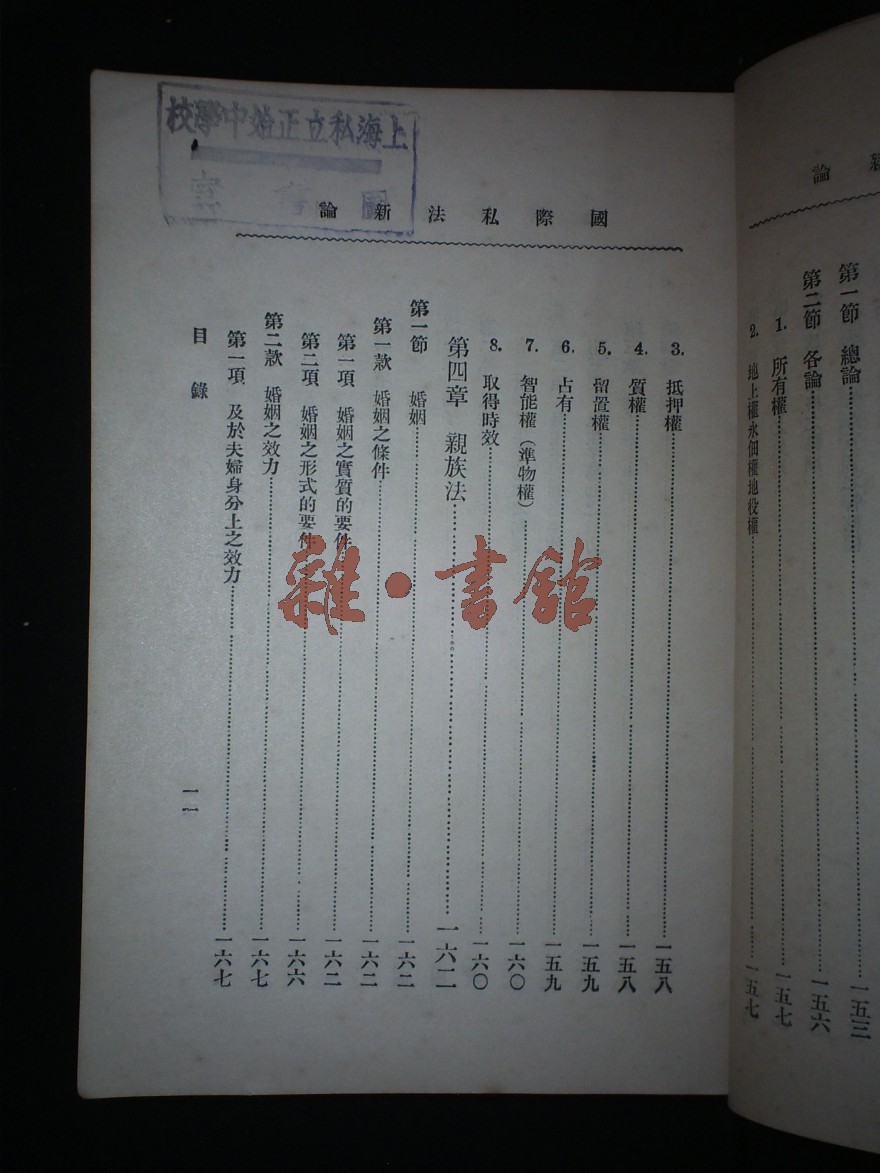 上海私立正始中學校
圖書室
國際私法新論
3. 抵押權 一五八
4. 質權 一五八
5. 留置權 一五九
6. 占有 一五九
7. 智能權（準物權） 一六〇
8. 取得時效 一六〇
第四章 親族法 一六二
第一節 婚姻 一六二
第一款 婚姻之條件 一六二
第一項 婚姻之實質的要件 一六二
第二項 婚姻之形式的要件 一六六
第二款 婚姻之效力 一六七
第一項 及於夫婦身分上之效力 一六七
目錄
一一
新論
第一節 總論 一五三
第二節 各論 一五六
1. 所有權 一五七
2. 地上權永佃權地役權 一五七
雜·書館